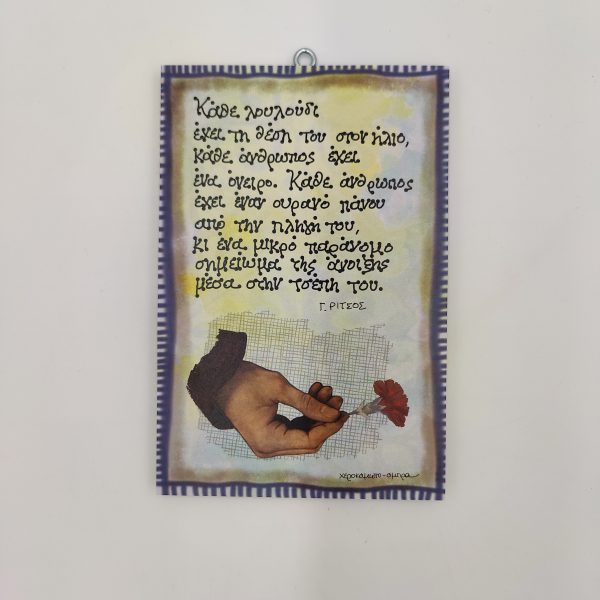 Κάθε λουλούδι
έχει τη θέση του στον ήλιο,
κάθε άνθρωπος έχει
ένα όνειρο. Κάθε άνθρωπος
έχει έναν ουρανό πάνου
από την πληγή του,
κι ένα μικρό παράνομο
σημείωμα της άνοιξης
μέσα στην τσέπη του.
Γ. ΡΙΤΣΟΣ
χεροκάμωτο - αμπρα